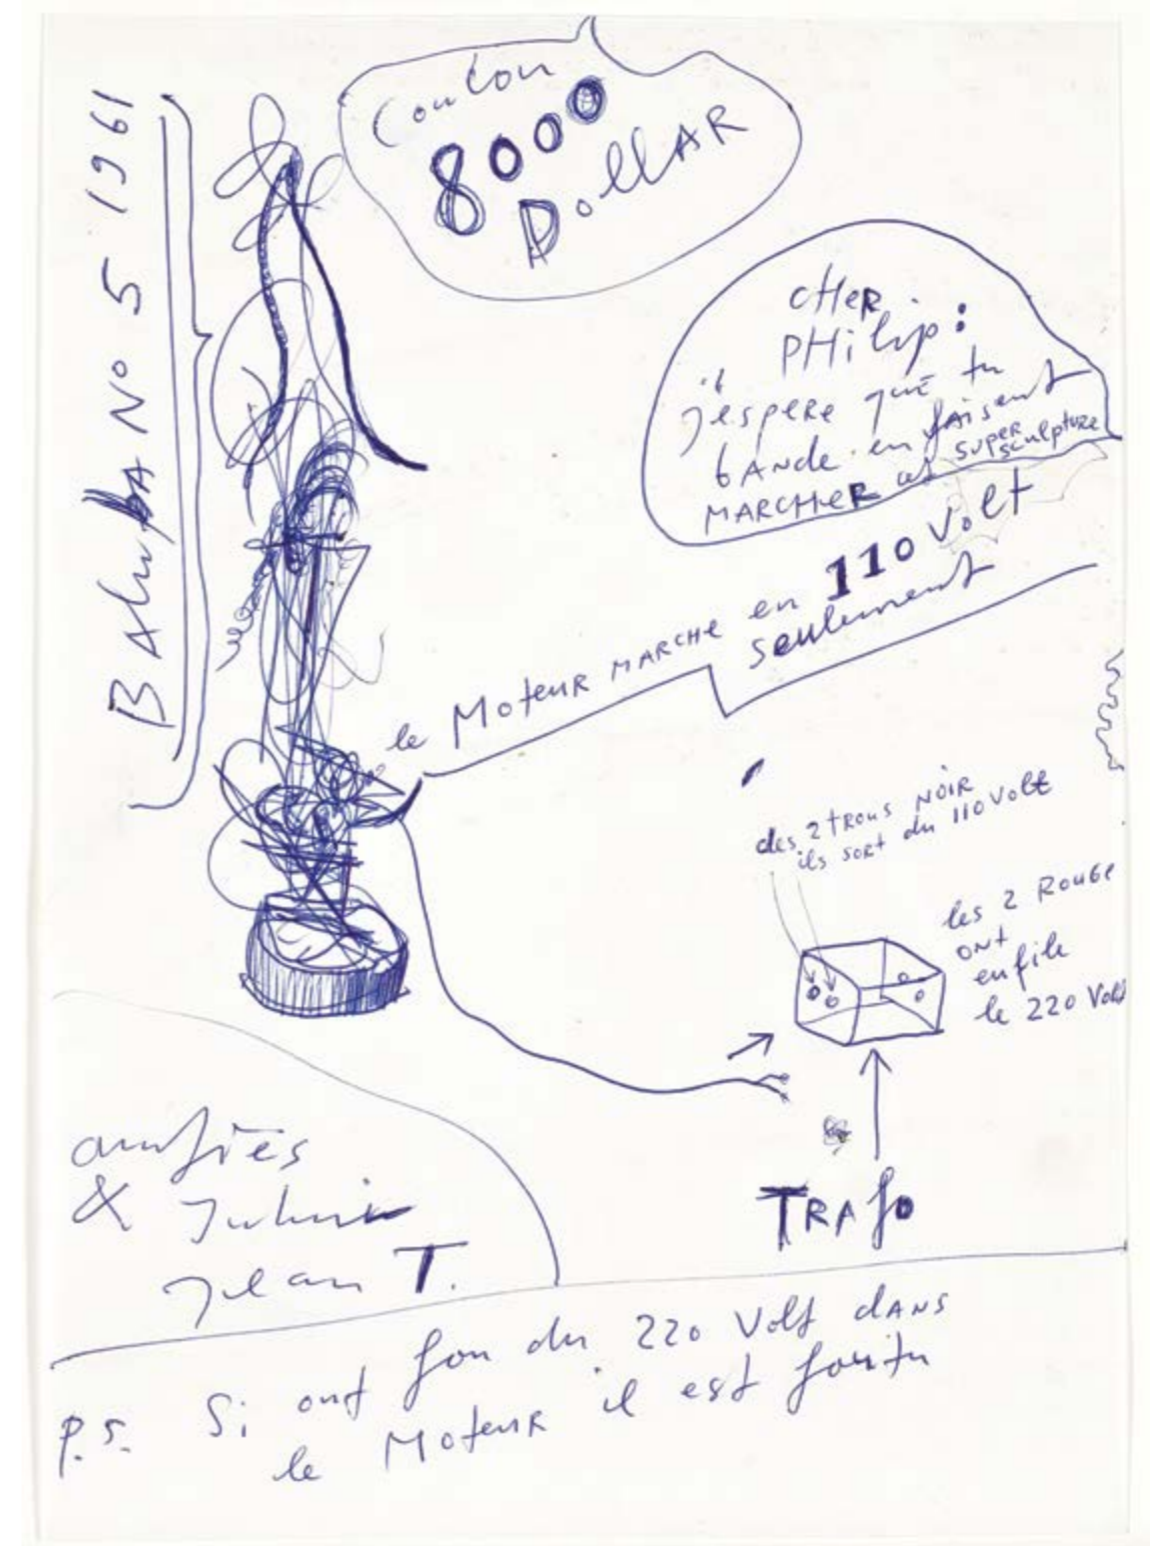 BAluba No 5 1961
8000
DollAR
cHER
PHilip:
j'espere que tu
bANde en faisent
MARCHER cet SUPER sculpture
le MoteuR MARCHe en 110 Volt
seulement
des 2 tRous NOIR
ils soRt du 110 Volt
les 2 RouGe
oNt
enfile
le 220 Volt
TRAfo
amities
&
Jean T.
P.S. Si ont fou du 220 Volt dANS
le MoteuR il est foutu